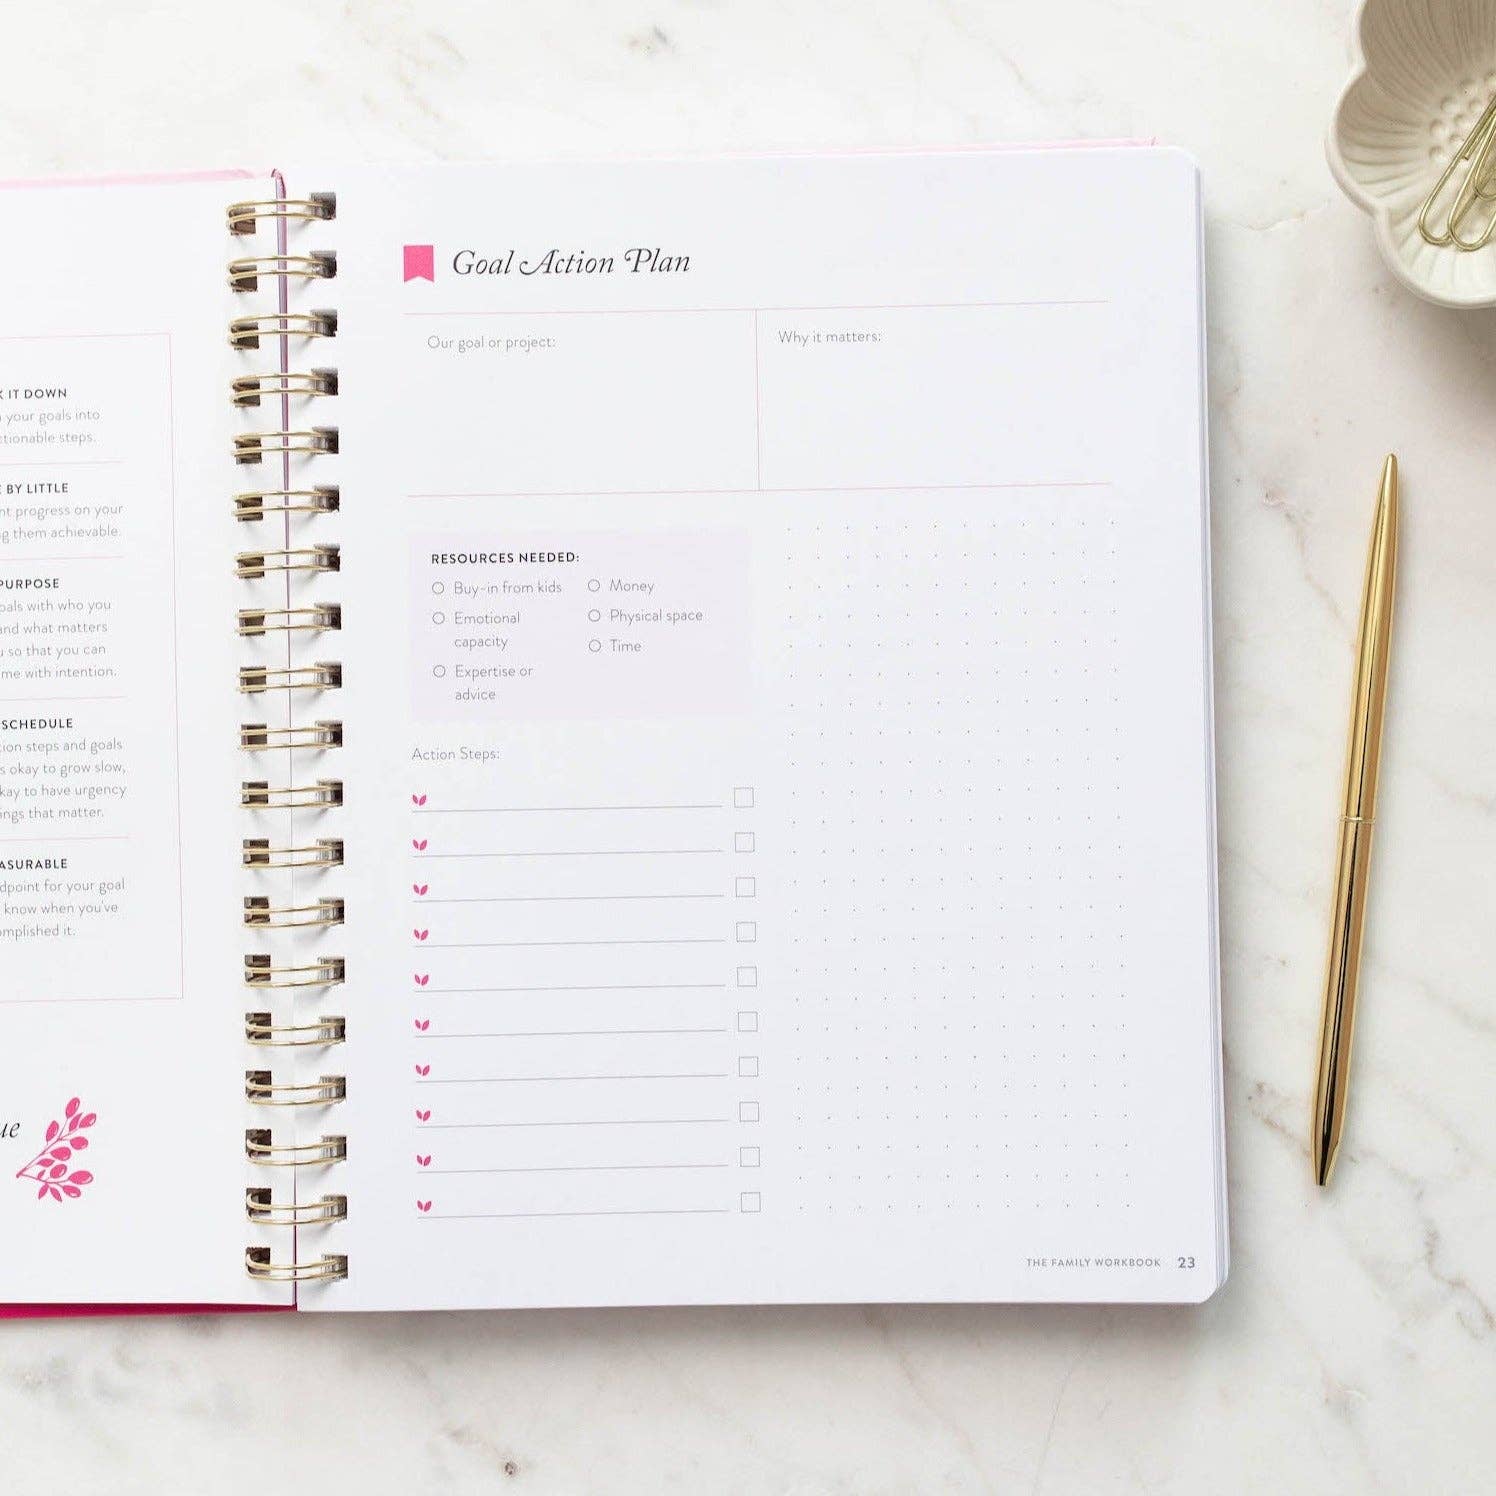 IT DOWN
your goals into
steps.
BY LITTLE
progress on your
them achievable.
PURPOSE
with who you
and what matters
so that you can
with intention.
SCHEDULE
steps and goals
okay to grow slow,
to have urgency
that matter.
for your goal
know when you've
it.
Goal Action Plan
Our goal or project:
Why it matters:
RESOURCES NEEDED:
Buy-in from kids
Money
Emotional
capacity
Physical space
Time
Expertise or
advice
Action Steps:
THE FAMILY WORKBOOK 23